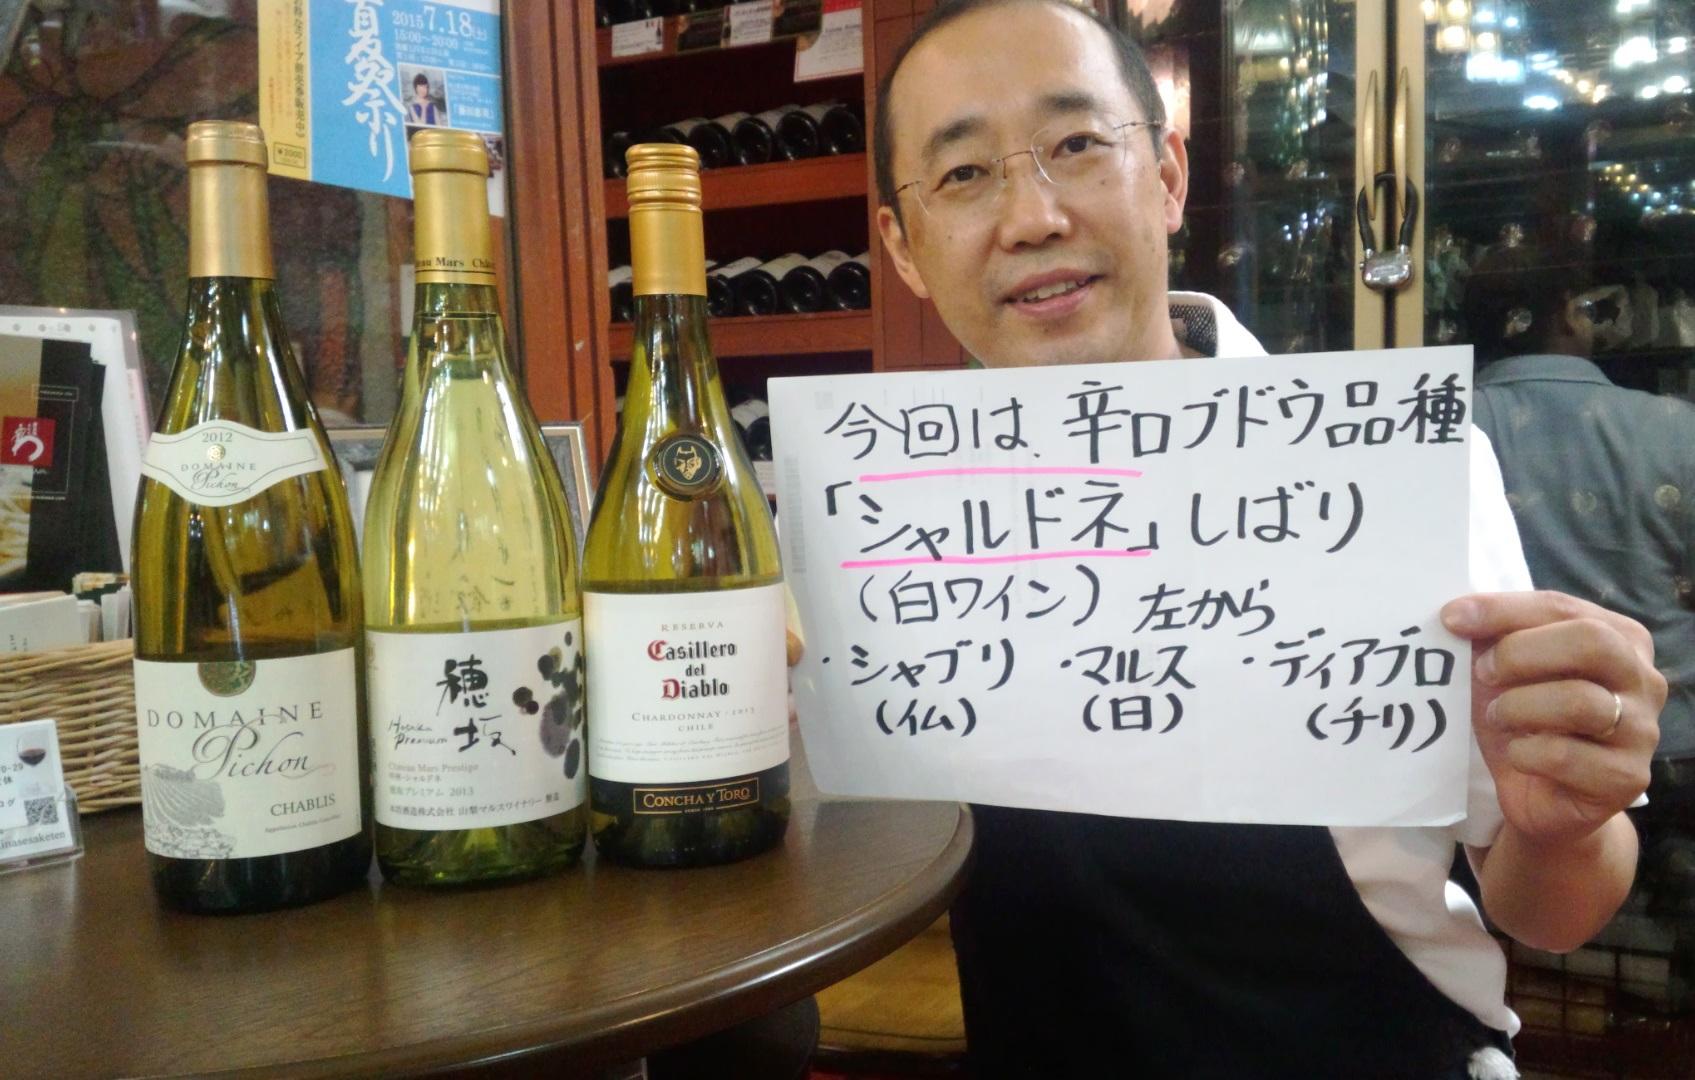 2015 7.18(土)
15:00〜20:00
夏祭り
¥2000
2012
DOMAINE
Pichon
DOMAINE
Pichon
CHABLIS
eau Mars Châ
穂坂
Hosaka
Premium
Château Mars Prestige
穂坂プレミアム 2013
本坊酒造株式会社 山梨マルスワイナリー 製造
RESERVA
Casillero
del
Diablo
CHARDONNAY · 2013
CHILE
CONCHA Y TORO
今回は、辛口ブドウ品種
「シャルドネ」しばり
(白ワイン) 左から
・シャブリ ・マルス ・ディアブロ
(仏) (日) (チリ)
inasesaketen